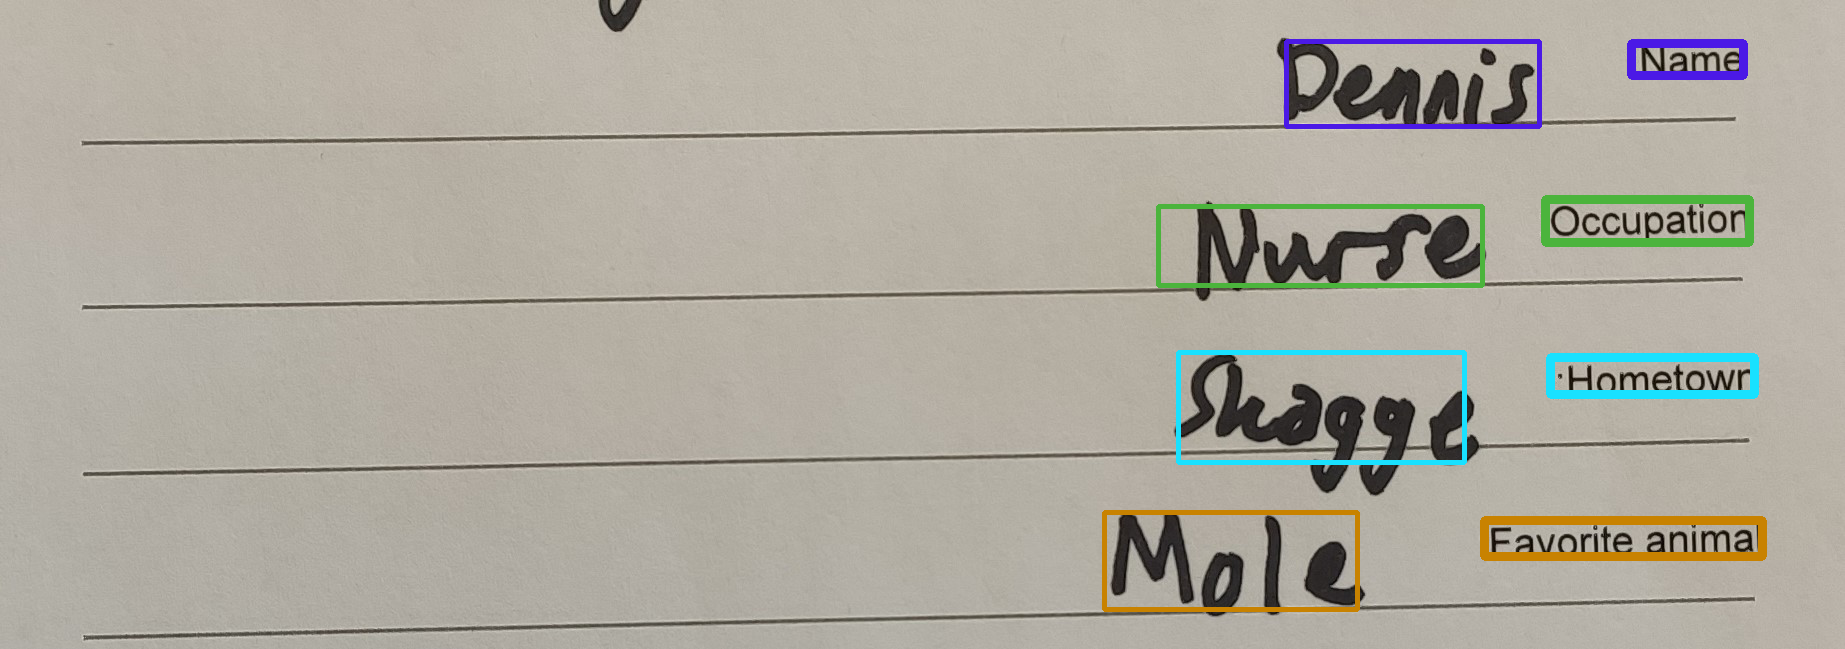 Dennis Name
Nurse Occupation
Hometown
Mole Favorite animal